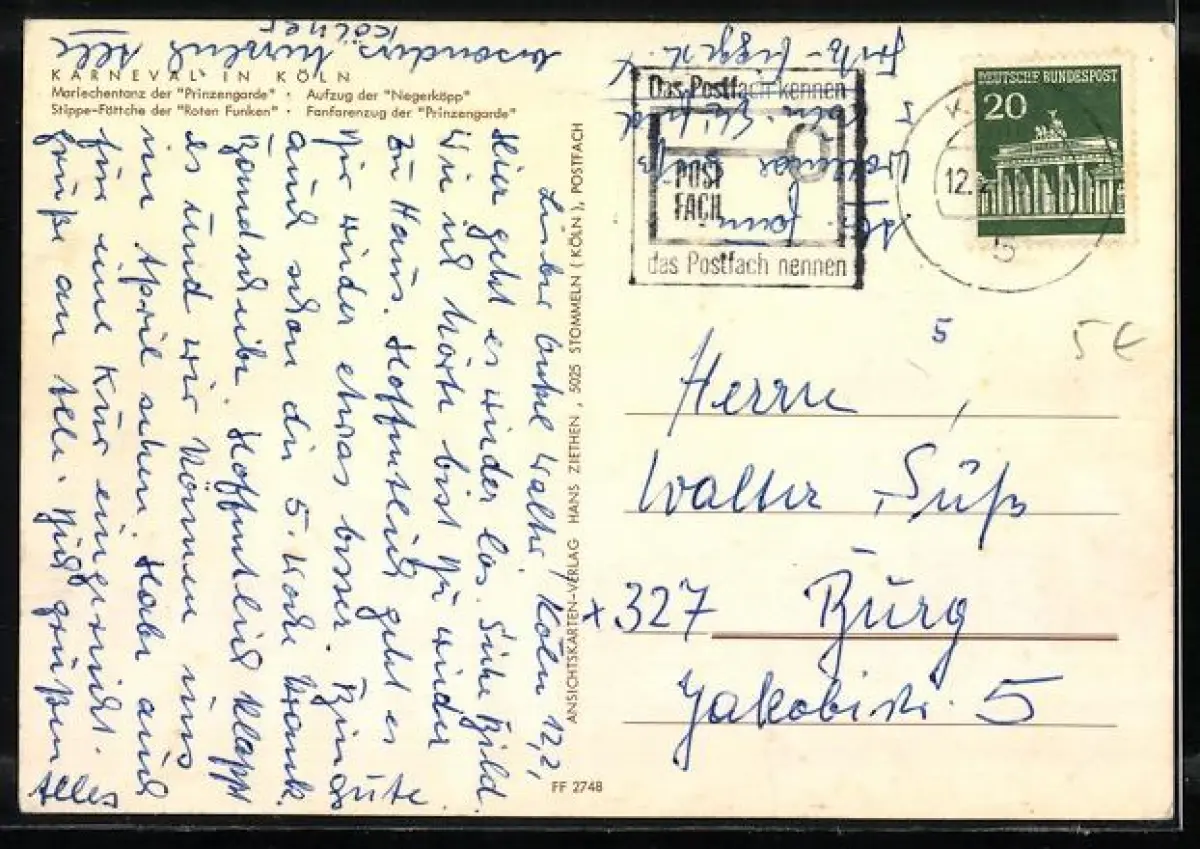 KARNEVAL IN KÖLN
Mariechentanz der "Prinzengarde" · Aufzug der "Negerköpp"
Stippe-Föttche der "Roten Funken" · Fanfarenzug der "Prinzengarde"
Köln 12.2.
Lieber Onkel Walter,
Hier geht es wieder los. Siehe Bild.
Wie ich hörte bist Du wieder
zu Haus. Hoffentlich geht es
Dir wieder etwas besser.
auch schon die 5. Woche krank.
Hoffentlich klappt
es und wir können uns
im April sehen. Habe auch
für eine Kur eingereicht.
Grüße an alle. Dich grüßen
alles
besonders herzlich alle
Kölner
ANSICHTSKARTEN-VERLAG HANS ZIETHEN, 5025 STOMMELN (KÖLN), POSTFACH
FF 2748
Das Postfach kennen
POST
FACH
das Postfach nennen
DEUTSCHE BUNDESPOST
20
12.
5
5
5 €
Herrn
Walter Süß
x 327 Burg
Jakobistr. 5